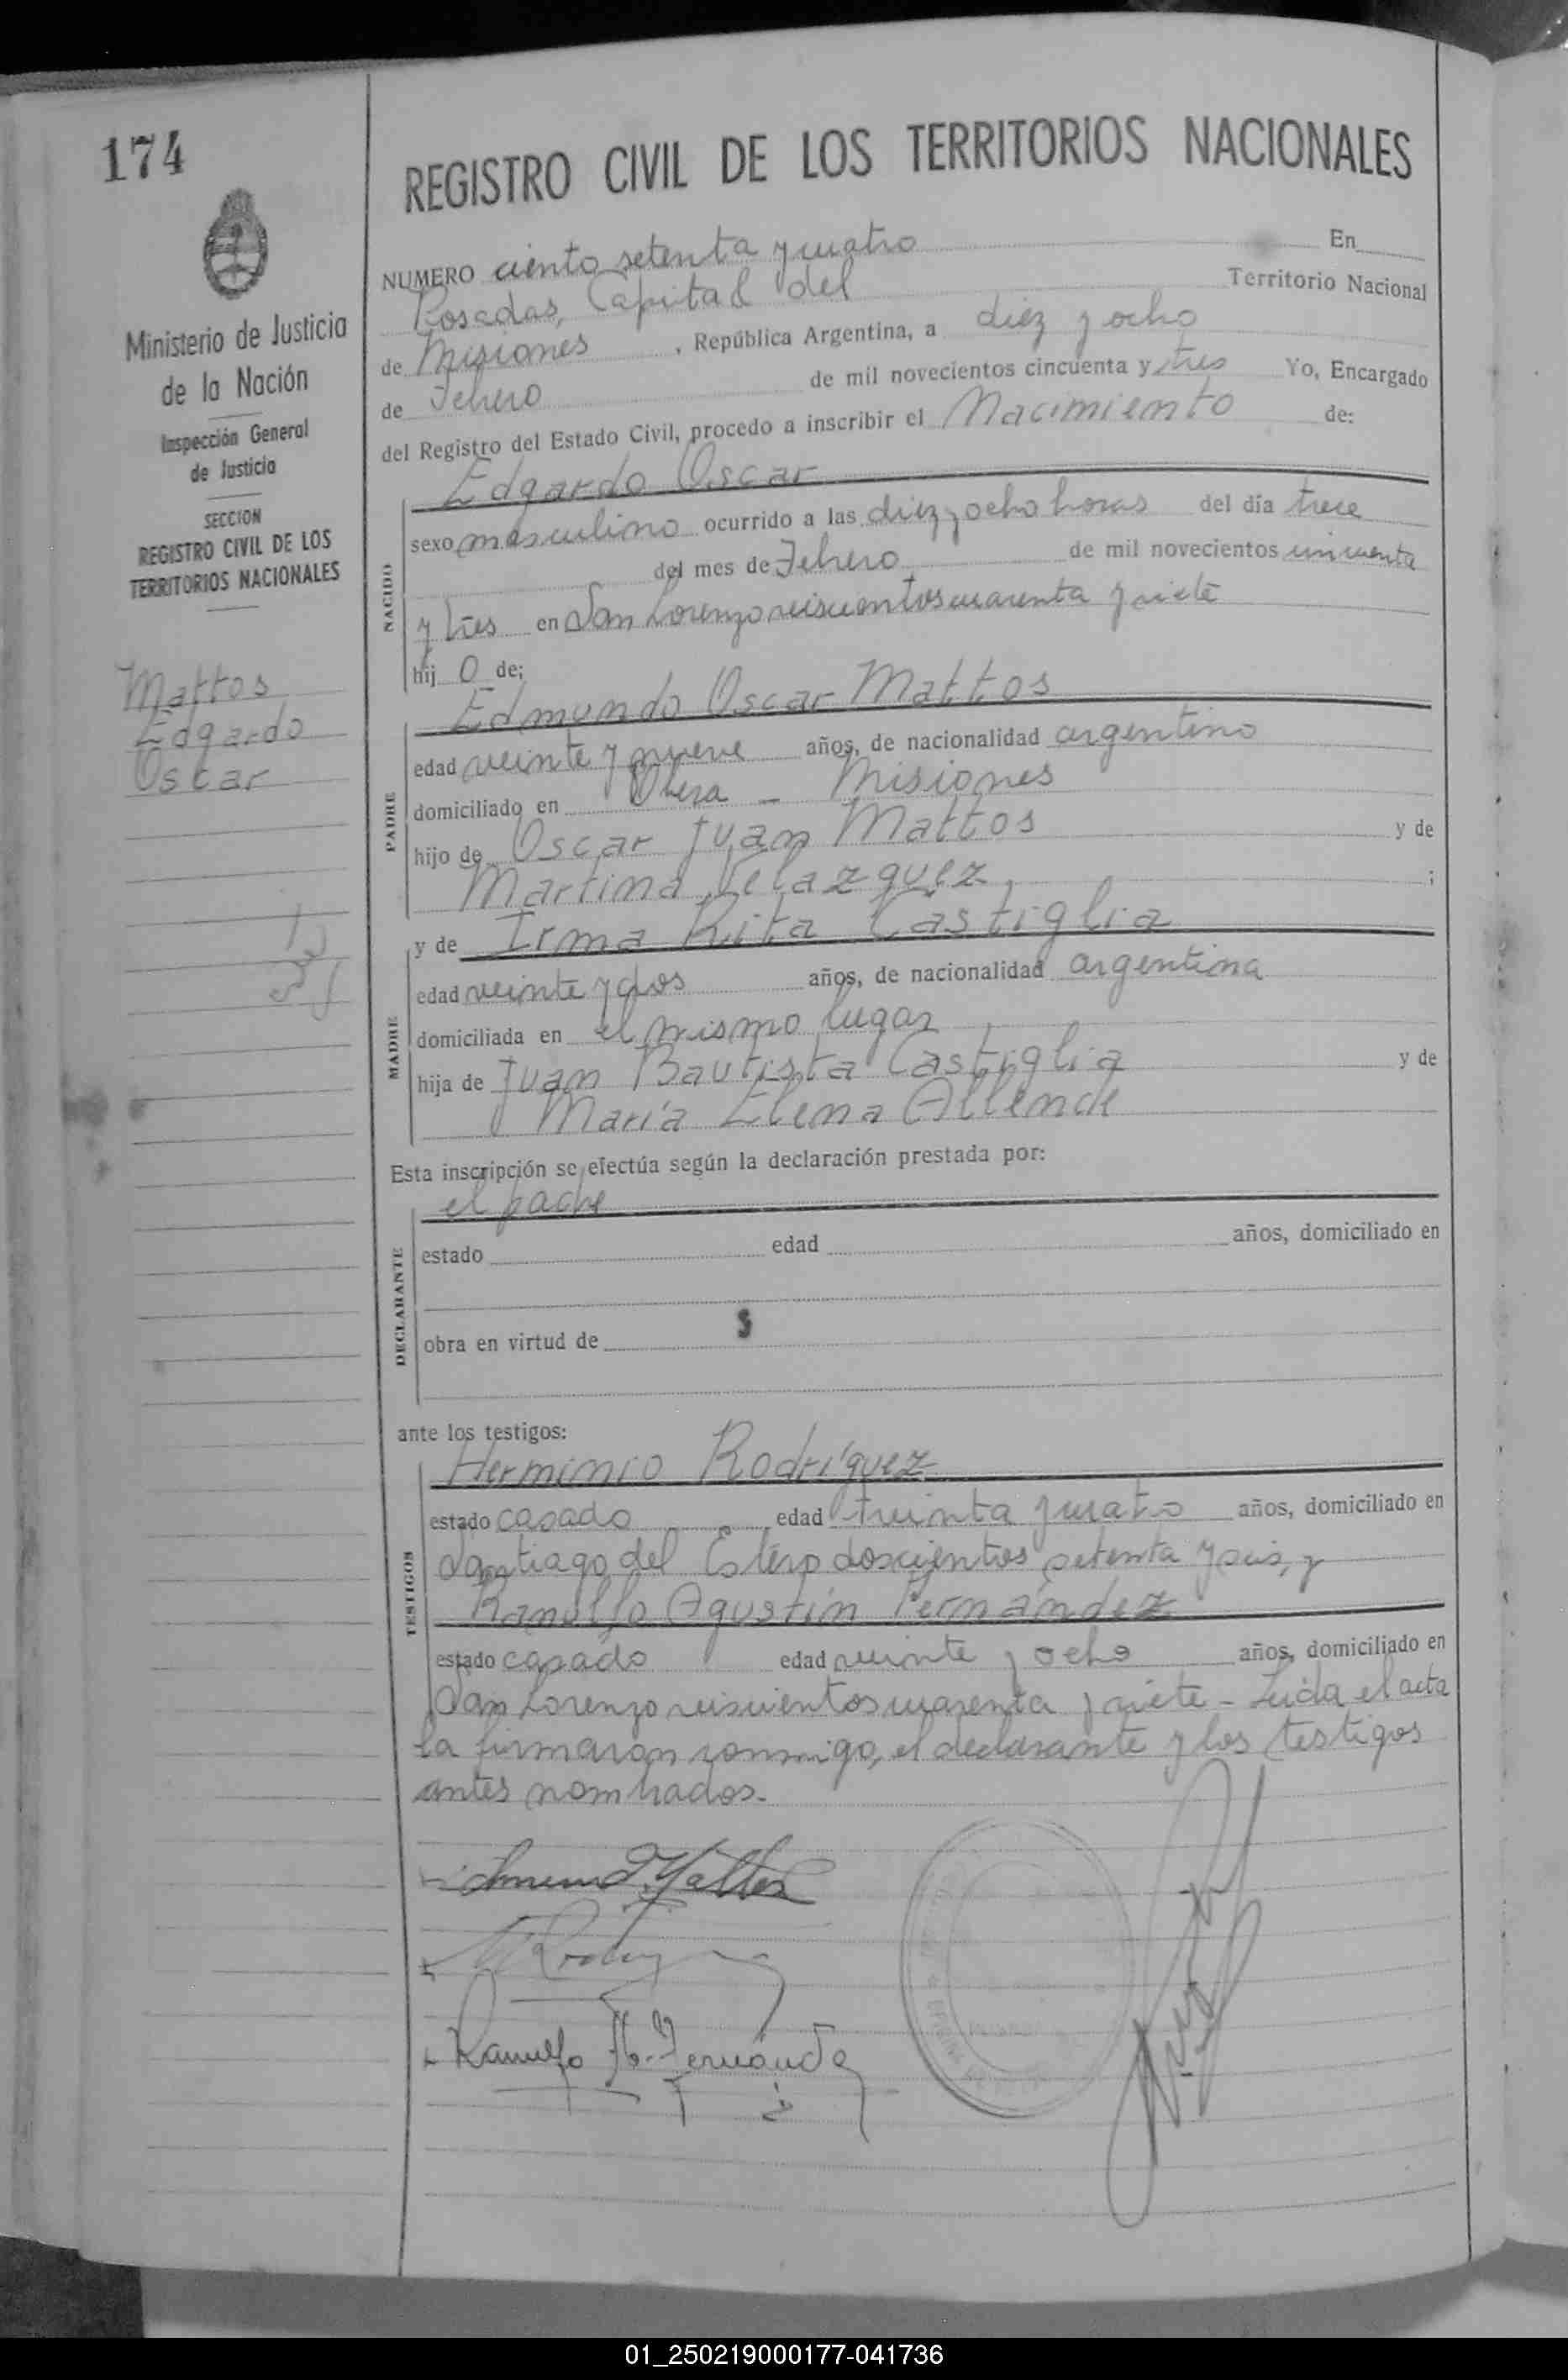 174
Ministerio de Justicia
de la Nación
Inspección General
de Justicia
SECCION
REGISTRO CIVIL DE LOS
TERRITORIOS NACIONALES
Mattos
Edgardo
Oscar
REGISTRO CIVIL DE LOS TERRITORIOS NACIONALES
NUMERO ciento setenta y cuatro En
Posadas, Capital del Territorio Nacional
de Misiones , República Argentina, a diez y ocho
de Febrero de mil novecientos cincuenta y tres Yo, Encargado
del Registro del Estado Civil, procedo a inscribir el Nacimiento de:
Edgardo Oscar
NACIDO
sexo masculino ocurrido a las diez y ocho horas del día trece
del mes de Febrero de mil novecientos cincuenta
y tres en San Lorenzo seiscientos cuarenta y siete
hij o de;
Edmundo Oscar Mattos
PADRE
edad veinte y nueve años, de nacionalidad argentino
domiciliado en Obera - Misiones
hijo de Oscar Juan Mattos y de
Martina Velazquez ;
y de Irma Rita Castiglia
MADRE
edad veinte y dos años, de nacionalidad argentina
domiciliada en el mismo lugar
hija de Juan Bautista Castiglia y de
María Elena Allende
Esta inscripción se efectúa según la declaración prestada por:
el padre
DECLARANTE
estado edad años, domiciliado en
obra en virtud de
ante los testigos:
Herminio Rodríguez
TESTIGOS
estado casado edad treinta y cuatro años, domiciliado en
Santiago del Estero doscientos setenta y seis, y
Ranulfo Agustín Fernandez
estado casado edad veinte y ocho años, domiciliado en
San Lorenzo seiscientos cuarenta y siete - Leida el acta
la firmaron conmigo, el declarante y los testigos
antes nombrados.
Ranulfo A. Fernández
01_250219000177-041736